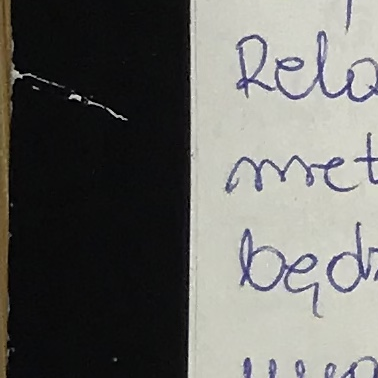 Rela
met
będz